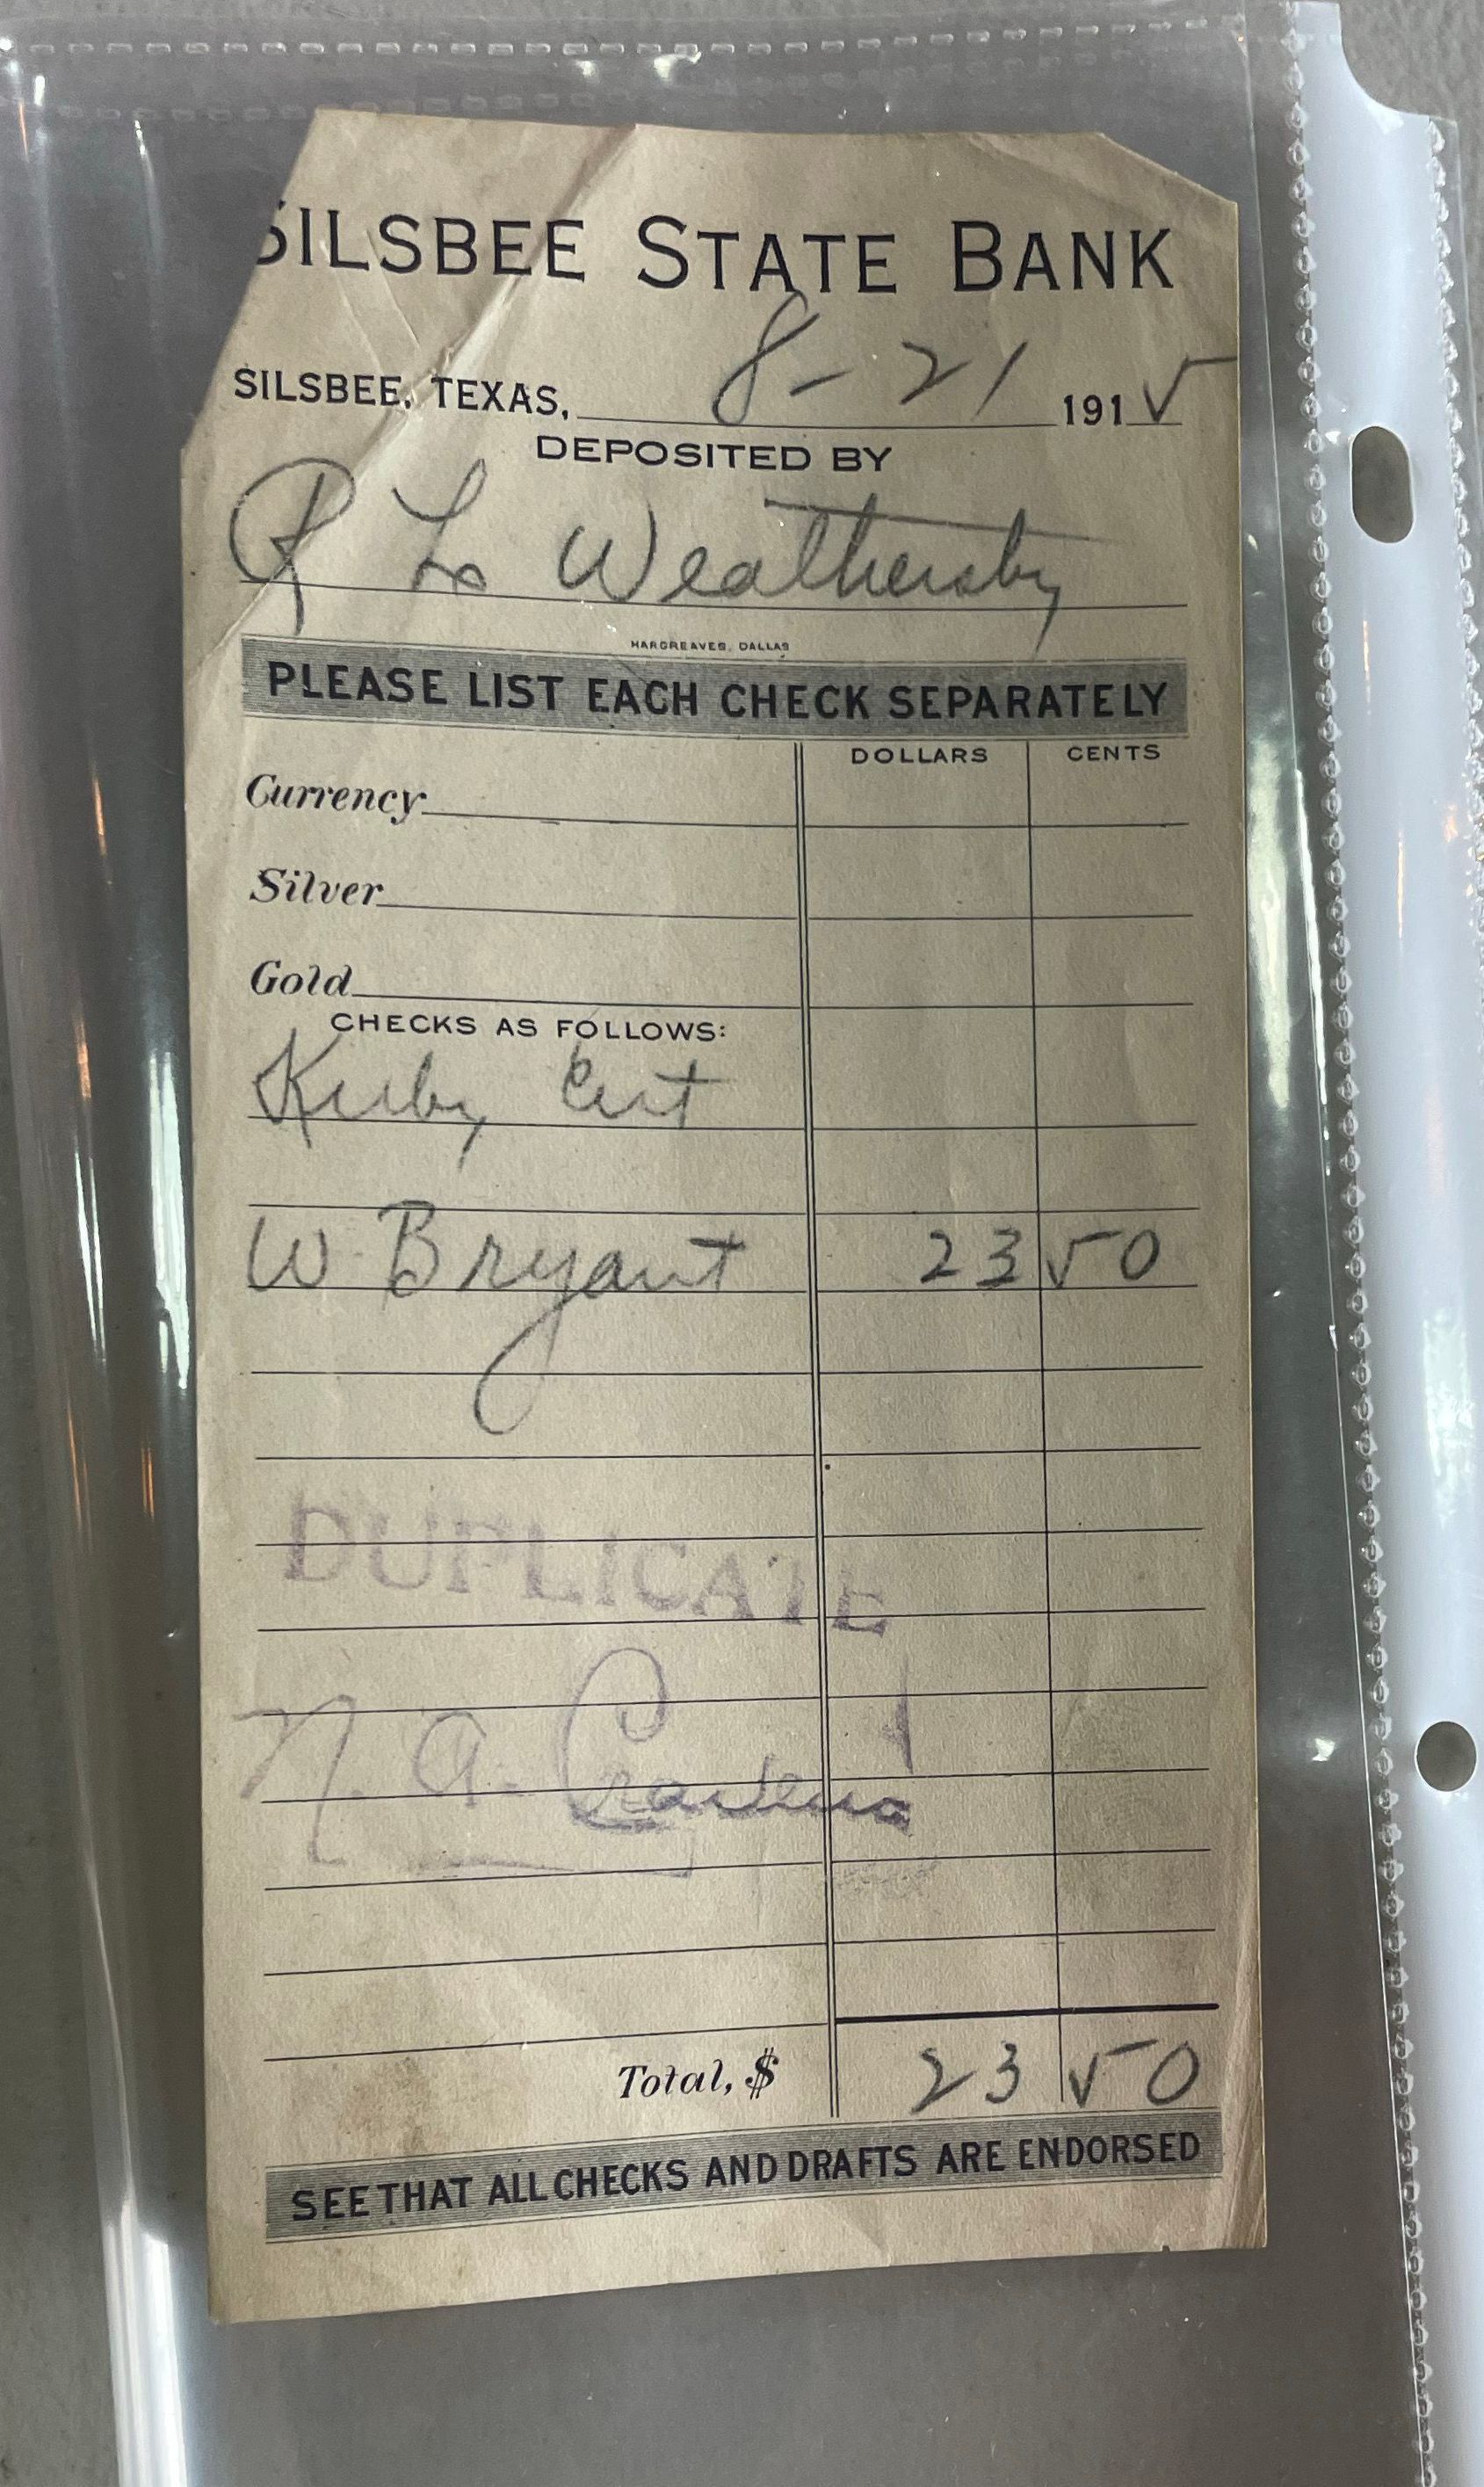 SILSBEE STATE BANK
SILSBEE, TEXAS, 8-21 1915
DEPOSITED BY
R L Weathersby
HARGREAVES, DALLAS
PLEASE LIST EACH CHECK SEPARATELY
DOLLARS CENTS
Currency
Silver
Gold
CHECKS AS FOLLOWS:
Kirby Cert
W. Bryant 23 50
DUPLICATE
N. A.
Total, $ 23 50
SEE THAT ALL CHECKS AND DRAFTS ARE ENDORSED